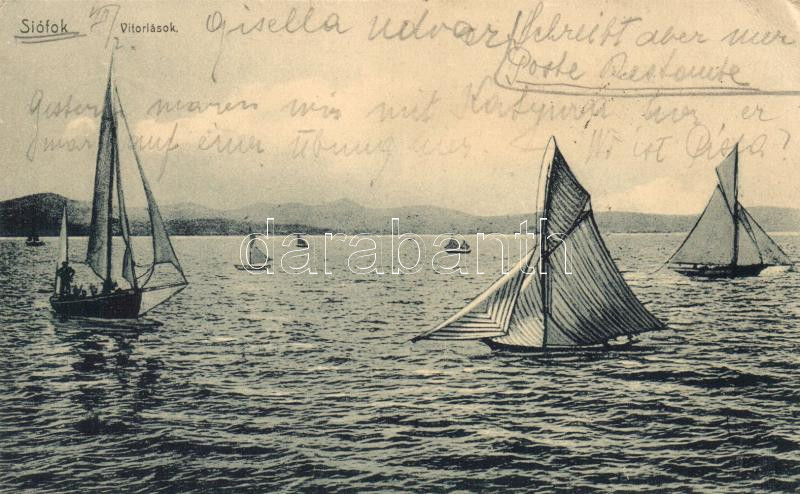 Siófok VII/2. Vitorlások.
Gisella udvar
Schreibt aber mir
Poste Restante
Gestern waren wir mit hier er
war auf einer Übung hier Wo ist
darabanth